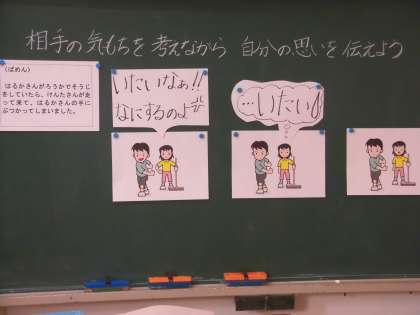 相手の気もちを考えながら 自分の思いを伝えよう
（ばめん）
はるかさんがろうかでそうじ
をしていたら、けんたさんが走
って来て、はるかさんの手に
ぶつかってしまいました。
いたいなぁ!!
なにするのよ
…いたい